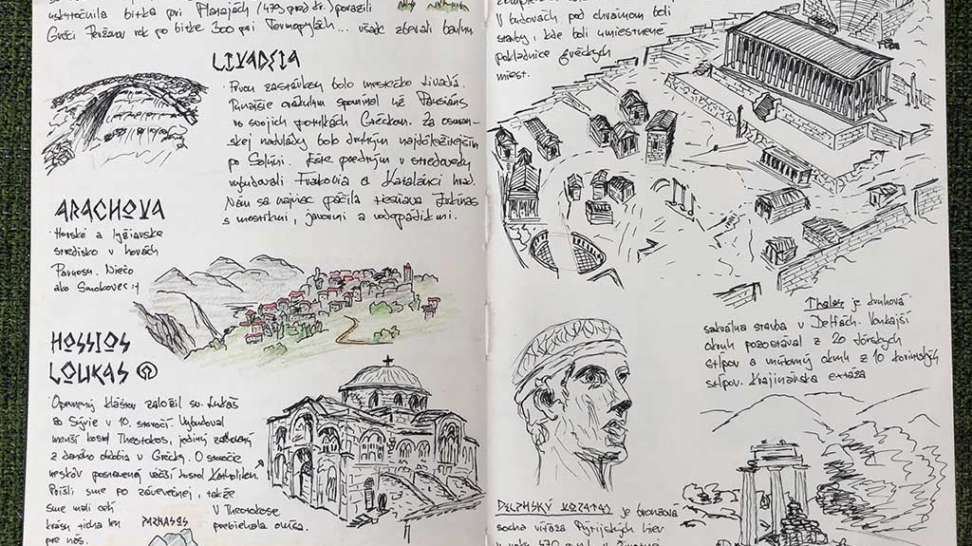 bitka pri Platajách (479 pred Kr.) porazili
Gréci Peržanov rok po bitke 300 pri Termopylách... však zbierali
LIVADEIA
Prvou zastávkou bolo mestečko Livadia.
Tunajšie orákulum spomínal už Pausanias
vo svojich potulkách Gréckom. Za osman-
skej nadvlády bolo druhým najdôležitejším
po Solúni. predtým v stredoveku
vybudovali Frankovia a Katalánci hrad.
Nám sa najviac páčila tiesňava
s mostíkmi, javormi a vodopádikmi.
ARACHOVA
Horské a lyžiarske
stredisko v horách
Parnasu. Niečo
ako Smokovec :)
HOSSIOS
LOUKAS
Opevnený kláštor založil sv. Lukáš
zo Sýrie v 10. storočí. Vybudoval
menší kostol Theotokos, jediný
z daného obdobia v Grécku. O storočie
neskôr postavený väčší kostol Katholikon.
Prišli sme po záverečnej, takže
sme mali celú
krásu ticha len
pre nás.
PARNASOS
V Theotokose
prebiehala omša.
V budovách pod chrámom boli
stavby, kde boli umiestnené
pokladnice gréckych
miest.
Tholos je kruhová
sakrálna stavba v Delfách. Vonkajší
okruh pozostával z 20 dórskych
stĺpov a vnútorný okruh z 10 korintských
stĺpov. Krajinárska extáza
DELPHSKÝ VOZATAJ je bronzová
socha víťaza Pýtijských hier